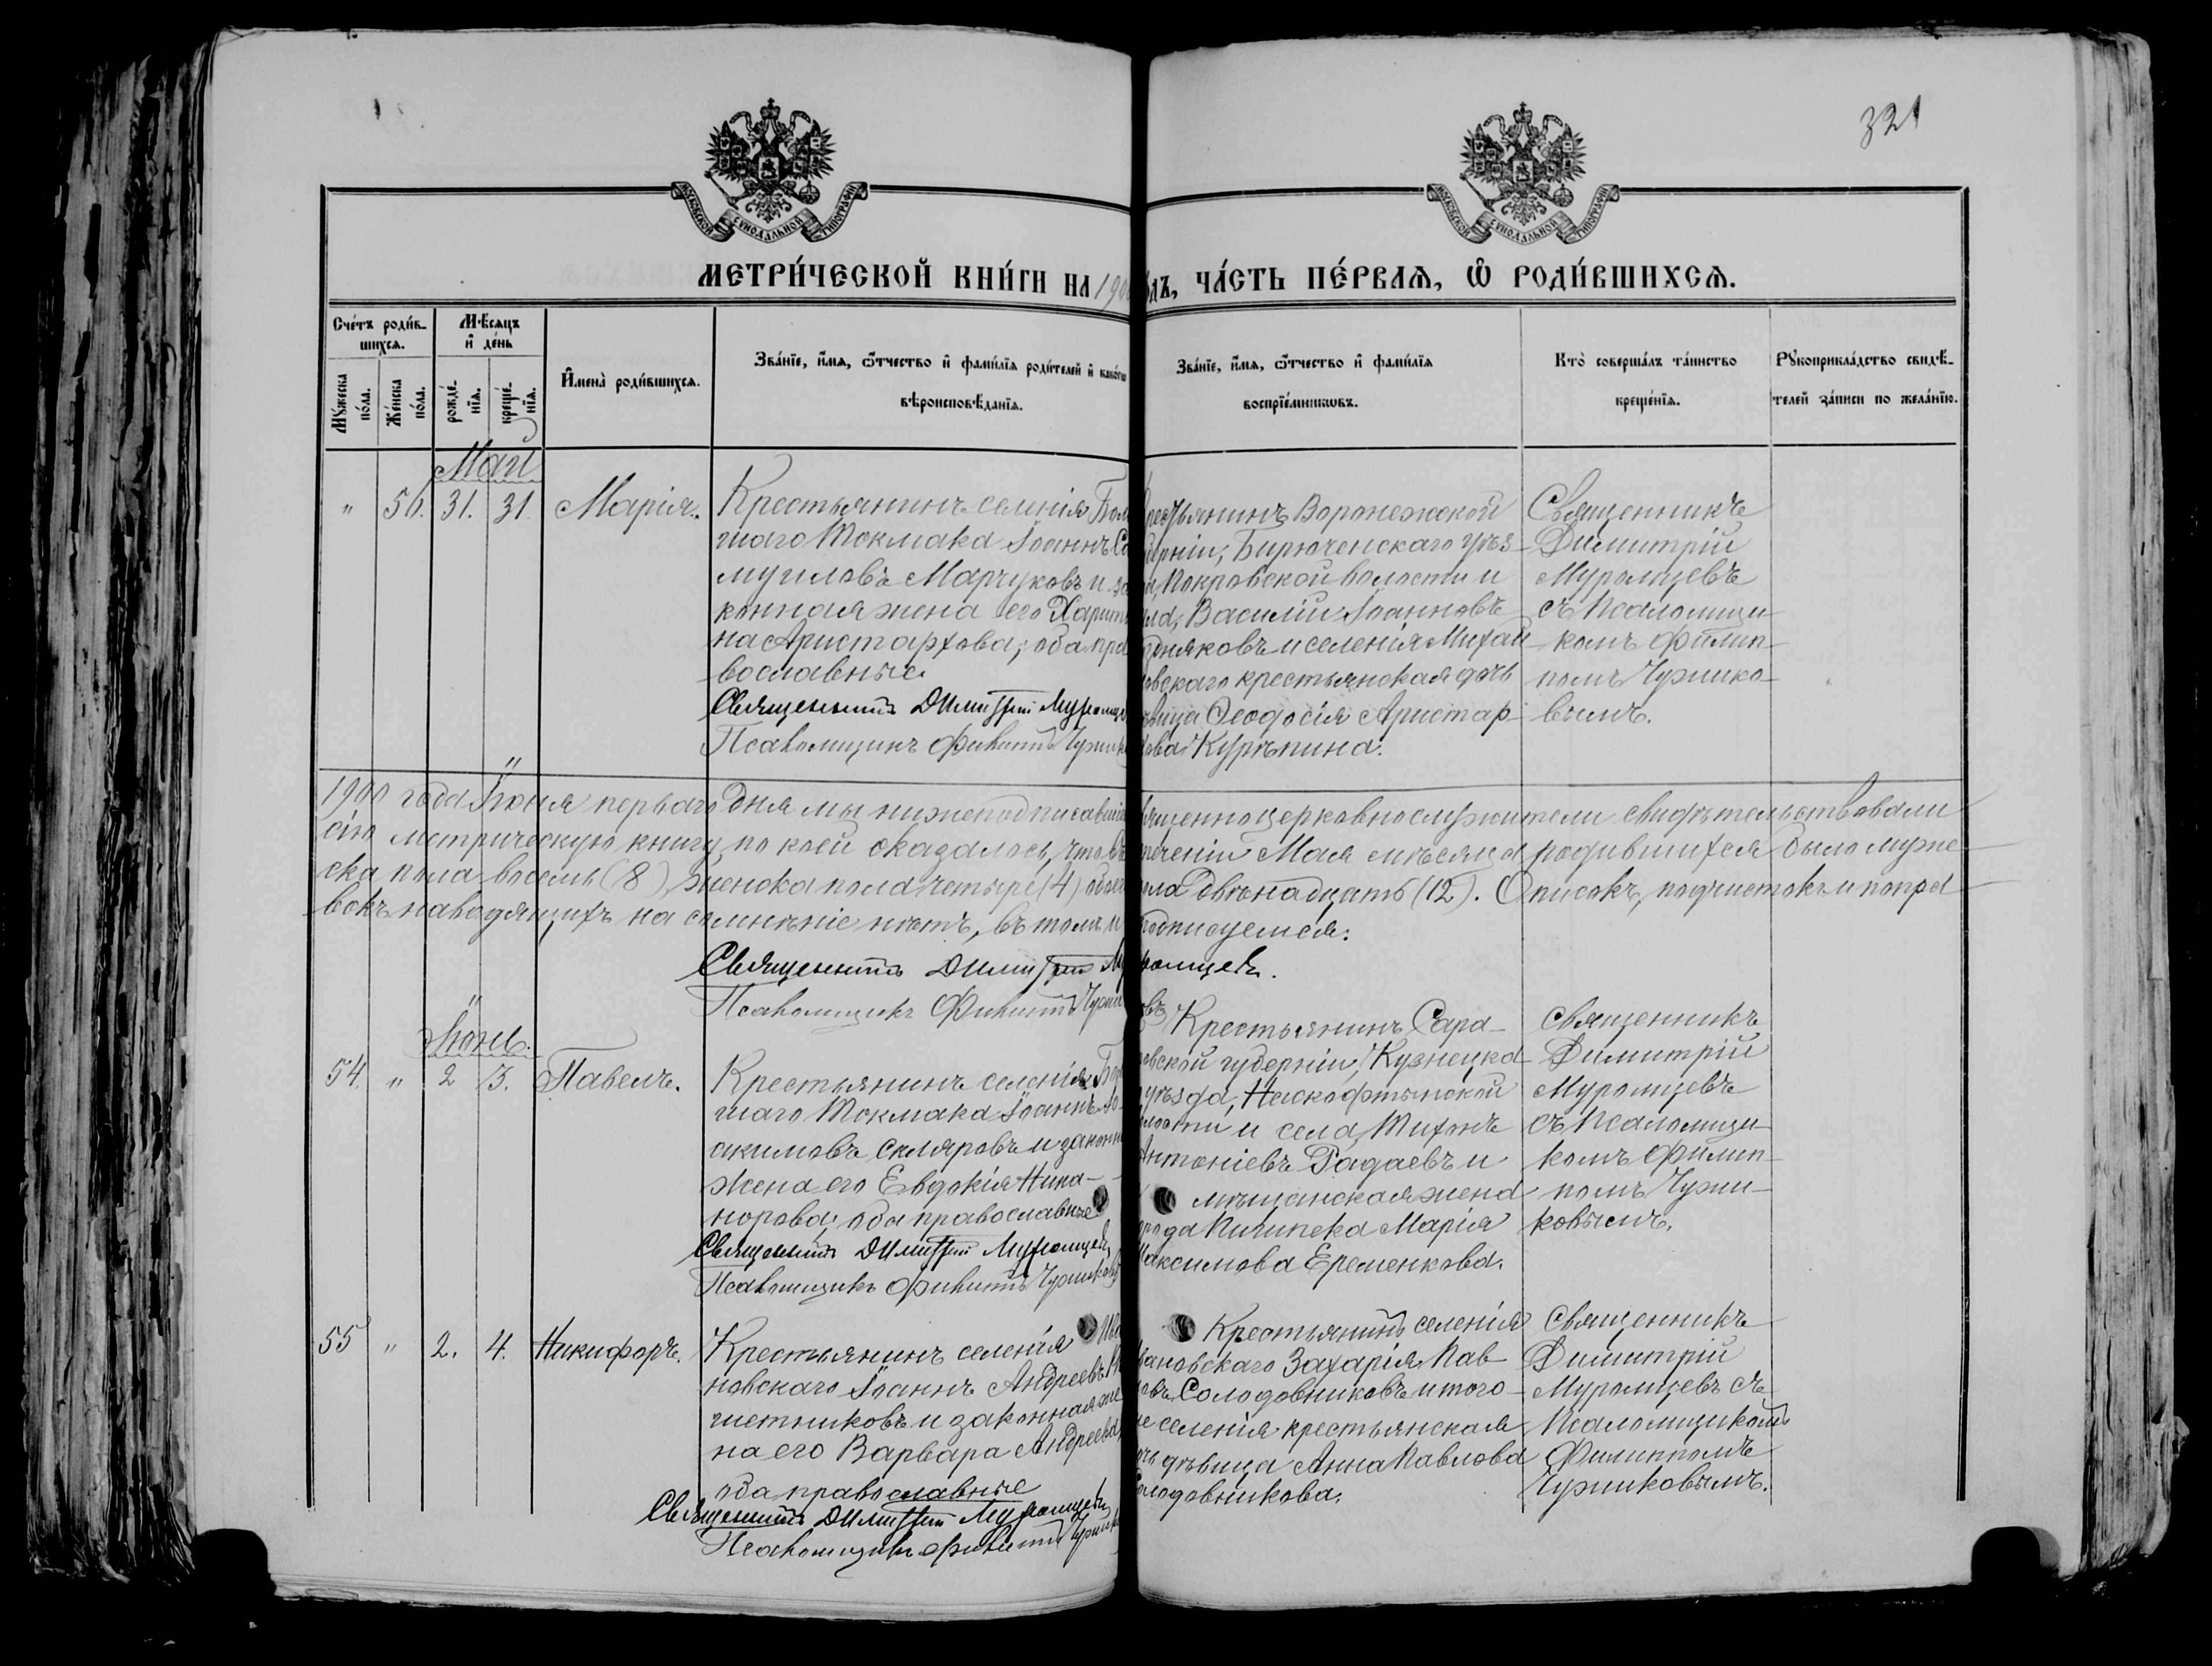 321
МОСКОВСКОЙ СѴНОДАЛЬНОЙ ТИПОГРАФІИ
МОСКОВСКОЙ СѴНОДАЛЬНОЙ ТИПОГРАФІИ
МЕТРИ́ЧЕСКОЙ КНИ́ГИ НА 190
дъ, ЧА́СТЬ ПЕ́РВАѦ, Ѡ҆ РОДИ́ВШИХСѦ.
Сче́тъ роди́в-
шихсѧ.
Мꙋ́жеска по́ла.
Же́нска по́ла.
Мѣ́сѧцъ
и҆ де́нь
рожде́-
нїѧ.
креще́-
нїѧ.
И҆мена̀ роди́вшихсѧ.
Зва́нїе, и҆́мѧ, ѻ҆́тчество и҆ фами́лїѧ роди́телей и҆ како́гѡ
вѣроисповѣ́данїѧ.
Зва́нїе, и҆́мѧ, ѻ҆́тчество и҆ фами́лїѧ
воспрїе́мникѡвъ.
Кто̀ соверша́лъ та́инство
креще́нїѧ.
Рꙋкоприкла́дство свидѣ́-
телей за́писи по жела́нїю.
Май
" 50. 31. 31 Марія.
Крестьянинъ селенія Бол
шаго Токмака Іоаннъ Са
муиловъ Марчуковъ и за
конная жена его Харити
на Аристархова; оба пра
вославные.
Священникъ Димитрій Муромце
Псаломщикъ Филиппъ Чужик
рестьянинъ Воронежской
берніи, Бирюченскаго уѣз-
Покровской волости и
ла, Василій Іоанновъ
дняковъ и селенія Михай
овскаго крестьянская дочь
вица Ѳеодосія Аристар-
ова Курѣпина.
Священникъ
Димитрій
Муромцевъ
съ Псаломщи-
комъ Филип-
помъ Чужико-
вымъ.
1900 года Іюня перваго дня мы нижеподписавшіе
ященноцерковнослужители свидѣтельствовали
сію метрическую книгу, по коей оказалось, что въ
теченіи Мая мѣсяца родившихся было муже-
ска пола восемь (8), женска пола четыре (4) обоег
ла двѣнадцать (12). Описокъ, подчистокъ и попра-
вокъ наводящихъ на сомнѣніе нѣтъ, въ томъ и
подписуемся:
Священникъ Димитрій Му
ромцевъ.
Псаломщикъ Филиппъ Чужи
овъ
Іюнь.
54. " 2 3. Павелъ.
Крестьянинъ селенія Бол
шаго Токмака Іоаннъ Іо-
акимовъ Скляровъ и законн
жена его Евдокія Ника-
норова; оба православные
Священникъ Димитрій Муромцевъ
Псаломщикъ Филиппъ Чужиковъ
Крестьянинъ Сара-
овской губерніи, Кузнецка-
уѣзда,
лости и села, Тихонъ
Антоніевъ Радаевъ и
мѣщанская жена
рода Пишпека Марія
аксимова Еременкова.
Священникъ
Димитрій
Муромцевъ
съ Псаломщи-
комъ Филип-
помъ Чужи-
ковымъ.
55 " 2. 4. Никифоръ.
Крестьянинъ селенія Ива
новскаго Іоаннъ Андреевъ
шетниковъ и законная же
на его Варвара Андреева,
оба православные
Священникъ Димитрій Муромцевъ
Псаломщикъ Филиппъ Чужик
Крестьянинъ селенія
вановскаго Захарія Пав-
овъ Солодовниковъ и того-
е селенія крестьянская
чь дѣвица Анна Павлова
олодовникова.
Священникъ
Димитрій
Муромцевъ съ
Псаломщикомъ
Филиппомъ
Чужиковымъ.